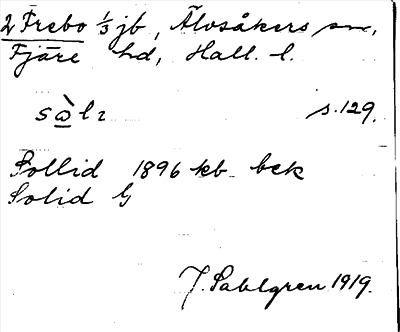 2 Frebo 1/3 jb, Älvsåkers sn,
Fjäre hd, Hall. l.
s. 129.
Sollid 1896 kb bck
Solid G
J. Sahlgren 1919.